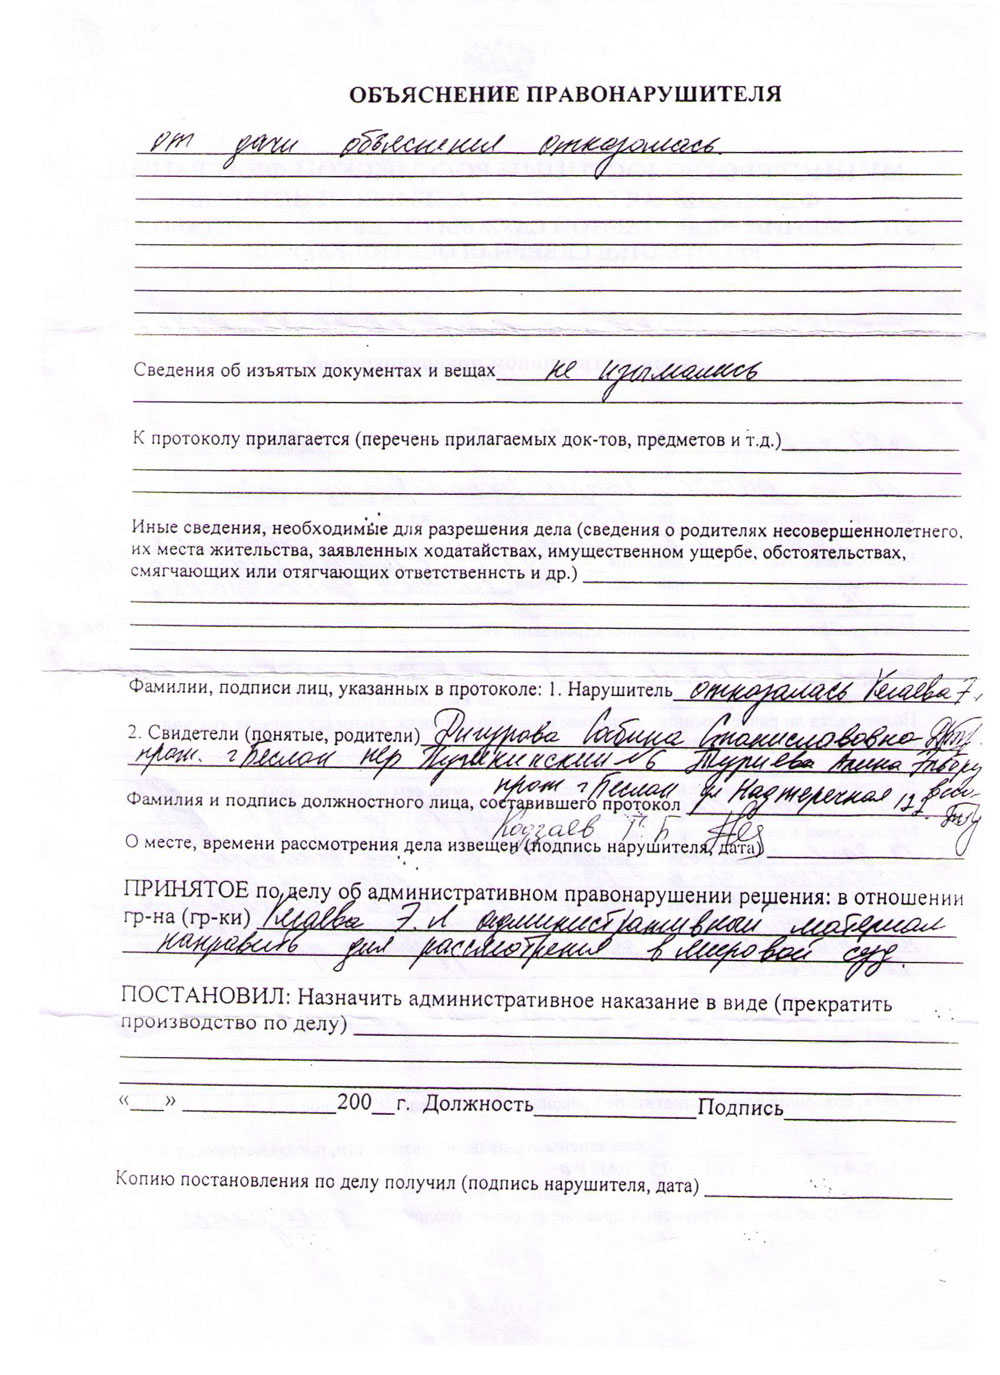 ОБЪЯСНЕНИЕ ПРАВОНАРУШИТЕЛЯ
от дачи объяснения отказалась.
Сведения об изъятых документах и вещах не изымались
К протоколу прилагается (перечень прилагаемых док-тов, предметов и т.д.)
Иные сведения, необходимые для разрешения дела (сведения о родителях несовершеннолетнего,
их места жительства, заявленных ходатайствах, имущественном ущербе, обстоятельствах,
смягчающих или отягчающих ответственнсть и др.)
Фамилии, подписи лиц, указанных в протоколе: 1. Нарушитель отказалась Кесаева Э.
2. Свидетели (понятые, родители) Дигурова Сабина Станиславовна
прож. г Беслан пер Пушкинский 6 Туриева Алина
прож г Беслан ул Надтеречная
Фамилия и подпись должностного лица, составившего протокол
Кодзаев Т. Б
О месте, времени рассмотрения дела извещен (подпись нарушителя, дата)
ПРИНЯТОЕ по делу об административном правонарушении решения: в отношении
гр-на (гр-ки) Кесаева Э. Л административный материал
направить для рассмотрения в мировой суд.
ПОСТАНОВИЛ: Назначить административное наказание в виде (прекратить
производство по делу)
«___» ____________200__г. Должность____________Подпись____________
Копию постановления по делу получил (подпись нарушителя, дата)